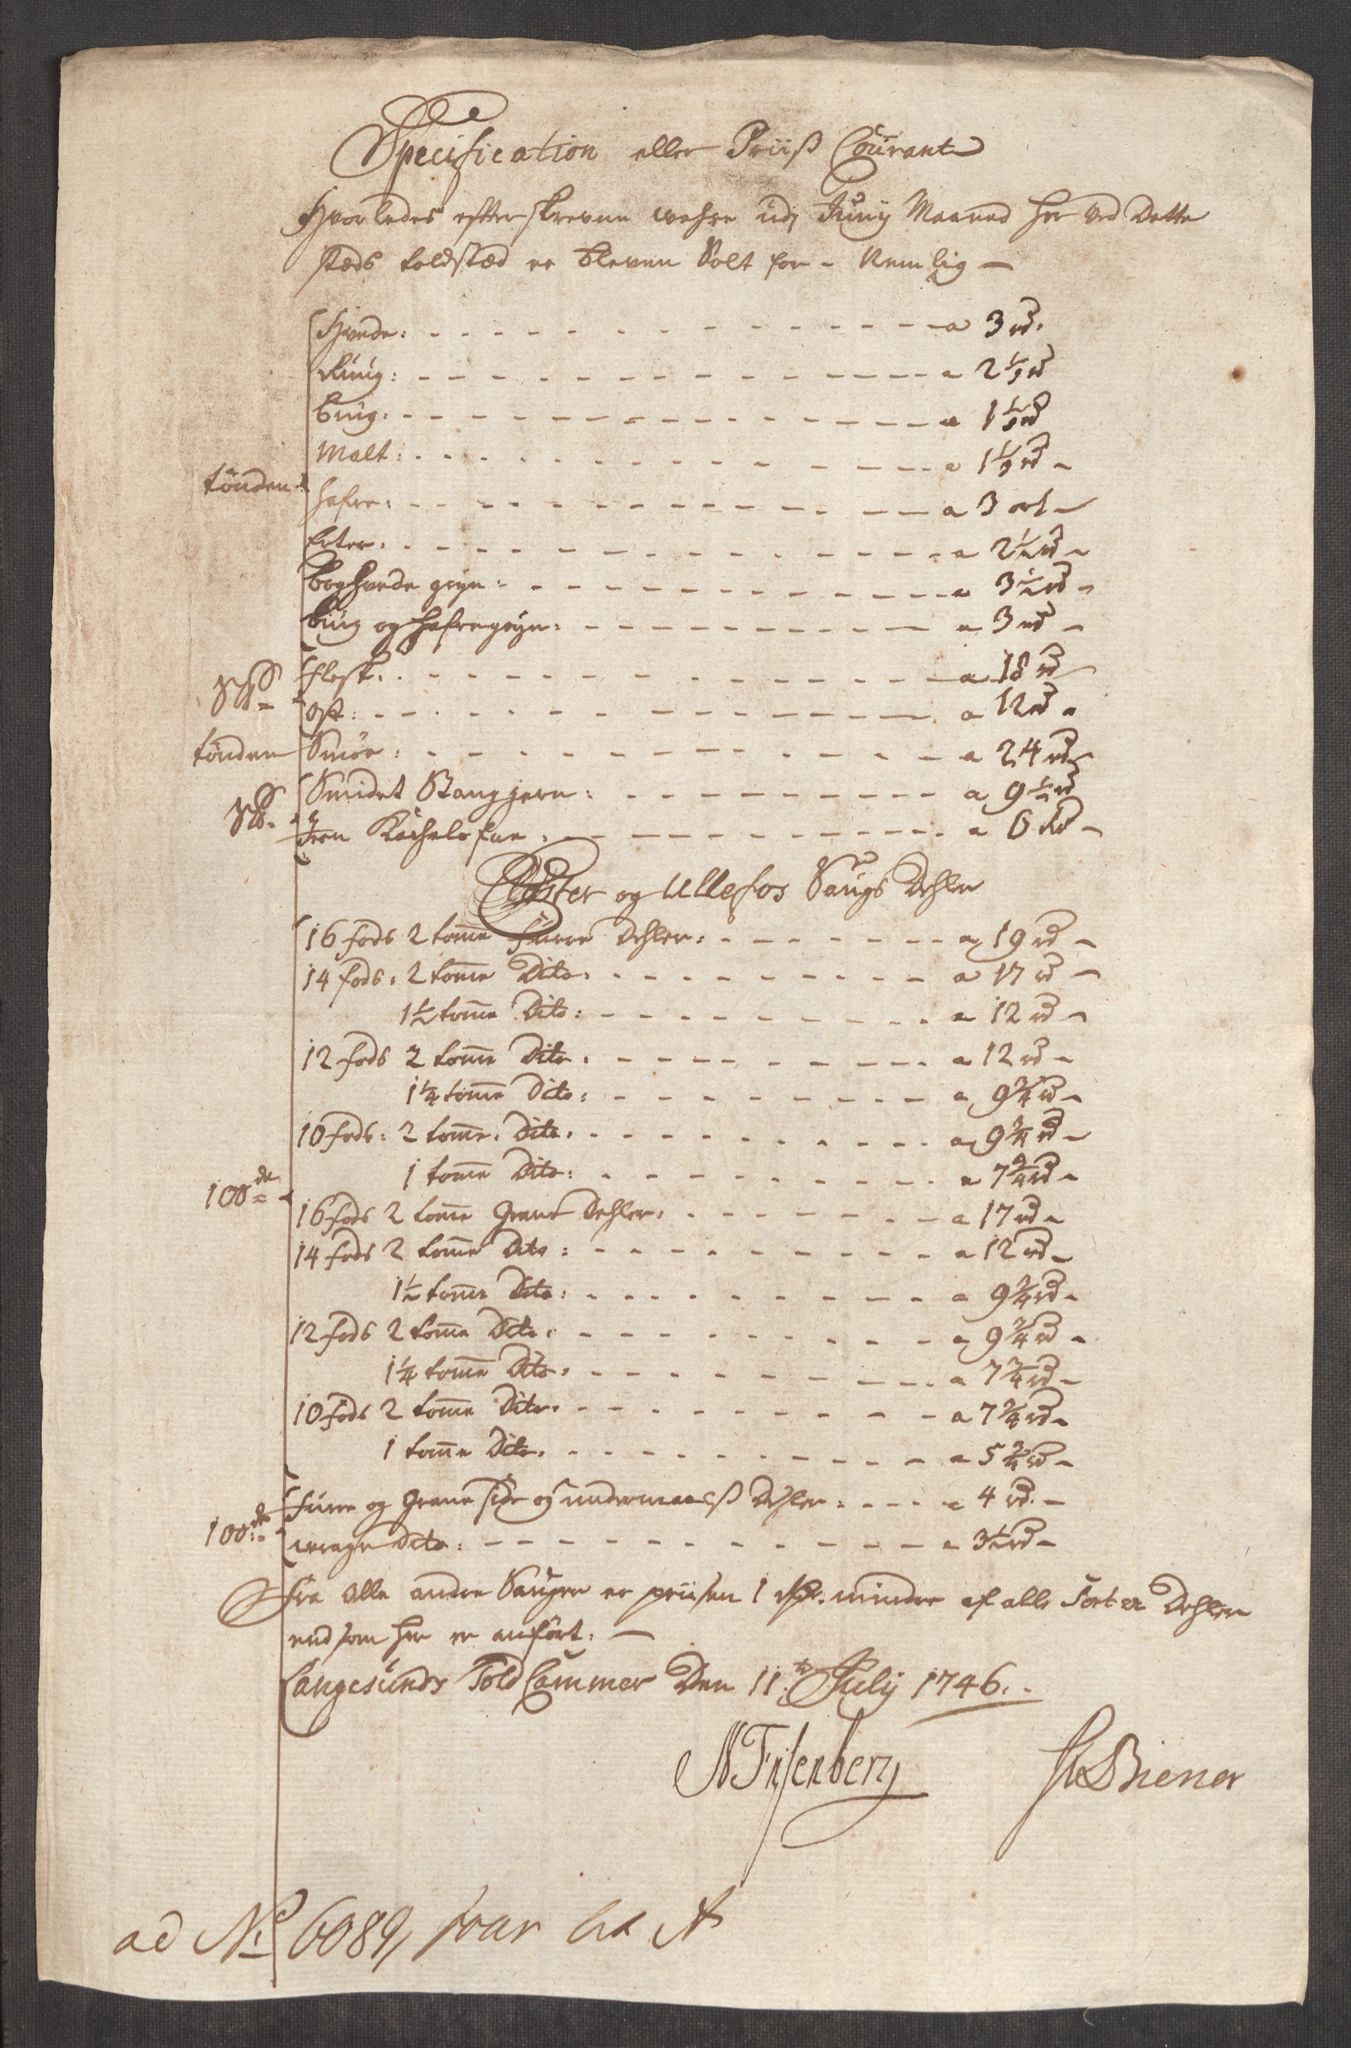 Specification eller Priiß Courant
Hvorledes efterskrevne wahre udj Junij Maaned her ved Dette
stæds toldstæd er bleven Solt for - Nemlig -
Hvede: a 3 rd.
Rüug: a 2½ rd
büug. a 1½ rd
Malt: a 1½ rd
tönden hafre: a 3 ort
Erter. a 2½ rd
boghvede gryn: a 3½ rd
büug og hafregryn: a 3 rd
flesk. a 18 rd
ost: a 12 rd
tönden Smör: a 24 rd
Smidet Stangjern: a 9½ rd
Jern Kachelofne. a 6 rd
Closter og Ullefos Saugs Dehler
16 fods 2 tomme furre Dehler: a 19 rd
14 fods: 2 tomme Dito. a 17 rd
1½ tomme Dito: a 12 rd
12 fods 2 tomme Dito. a 12 rd
1¼ tomme Dito: a 9¾ rd
10 fods: 2 tomme. Dito. a 9¾ rd
1 tomme Dito: a 7¾ rd
100de
16 fods 2 tomme Grane Dehler. a 17 rd
14 fods 2 tomme Dito: a 12 rd
1½ tomme Dito. a 9¾ rd
12 fods 2 tomme Dito. a 9¾ rd
1¼ tomme Dito. a 7¾ rd
10 fods 2 tomme Dito. a 7¾ rd
1 tomme Dito. a 5¾ rd
furre og Grane side og undermaals Dehler: a 4 rd.
100de wrage Dito: a 3½ rd
Fra alle andre Sauger er priisen 1 rdr. mindre af alle Sorter Dehler
end som her er anfört.
Langesunds Told Cammer Den 11te July 1746.
ad No 6089,